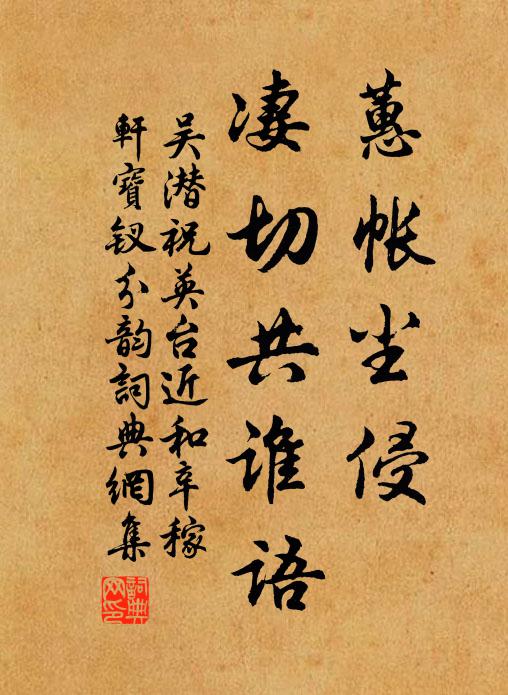 蕙帐尘侵
凄切共谁语
吴潜祝英台近和辛稼
軒寶钗分韵詞典網集
詞典网印